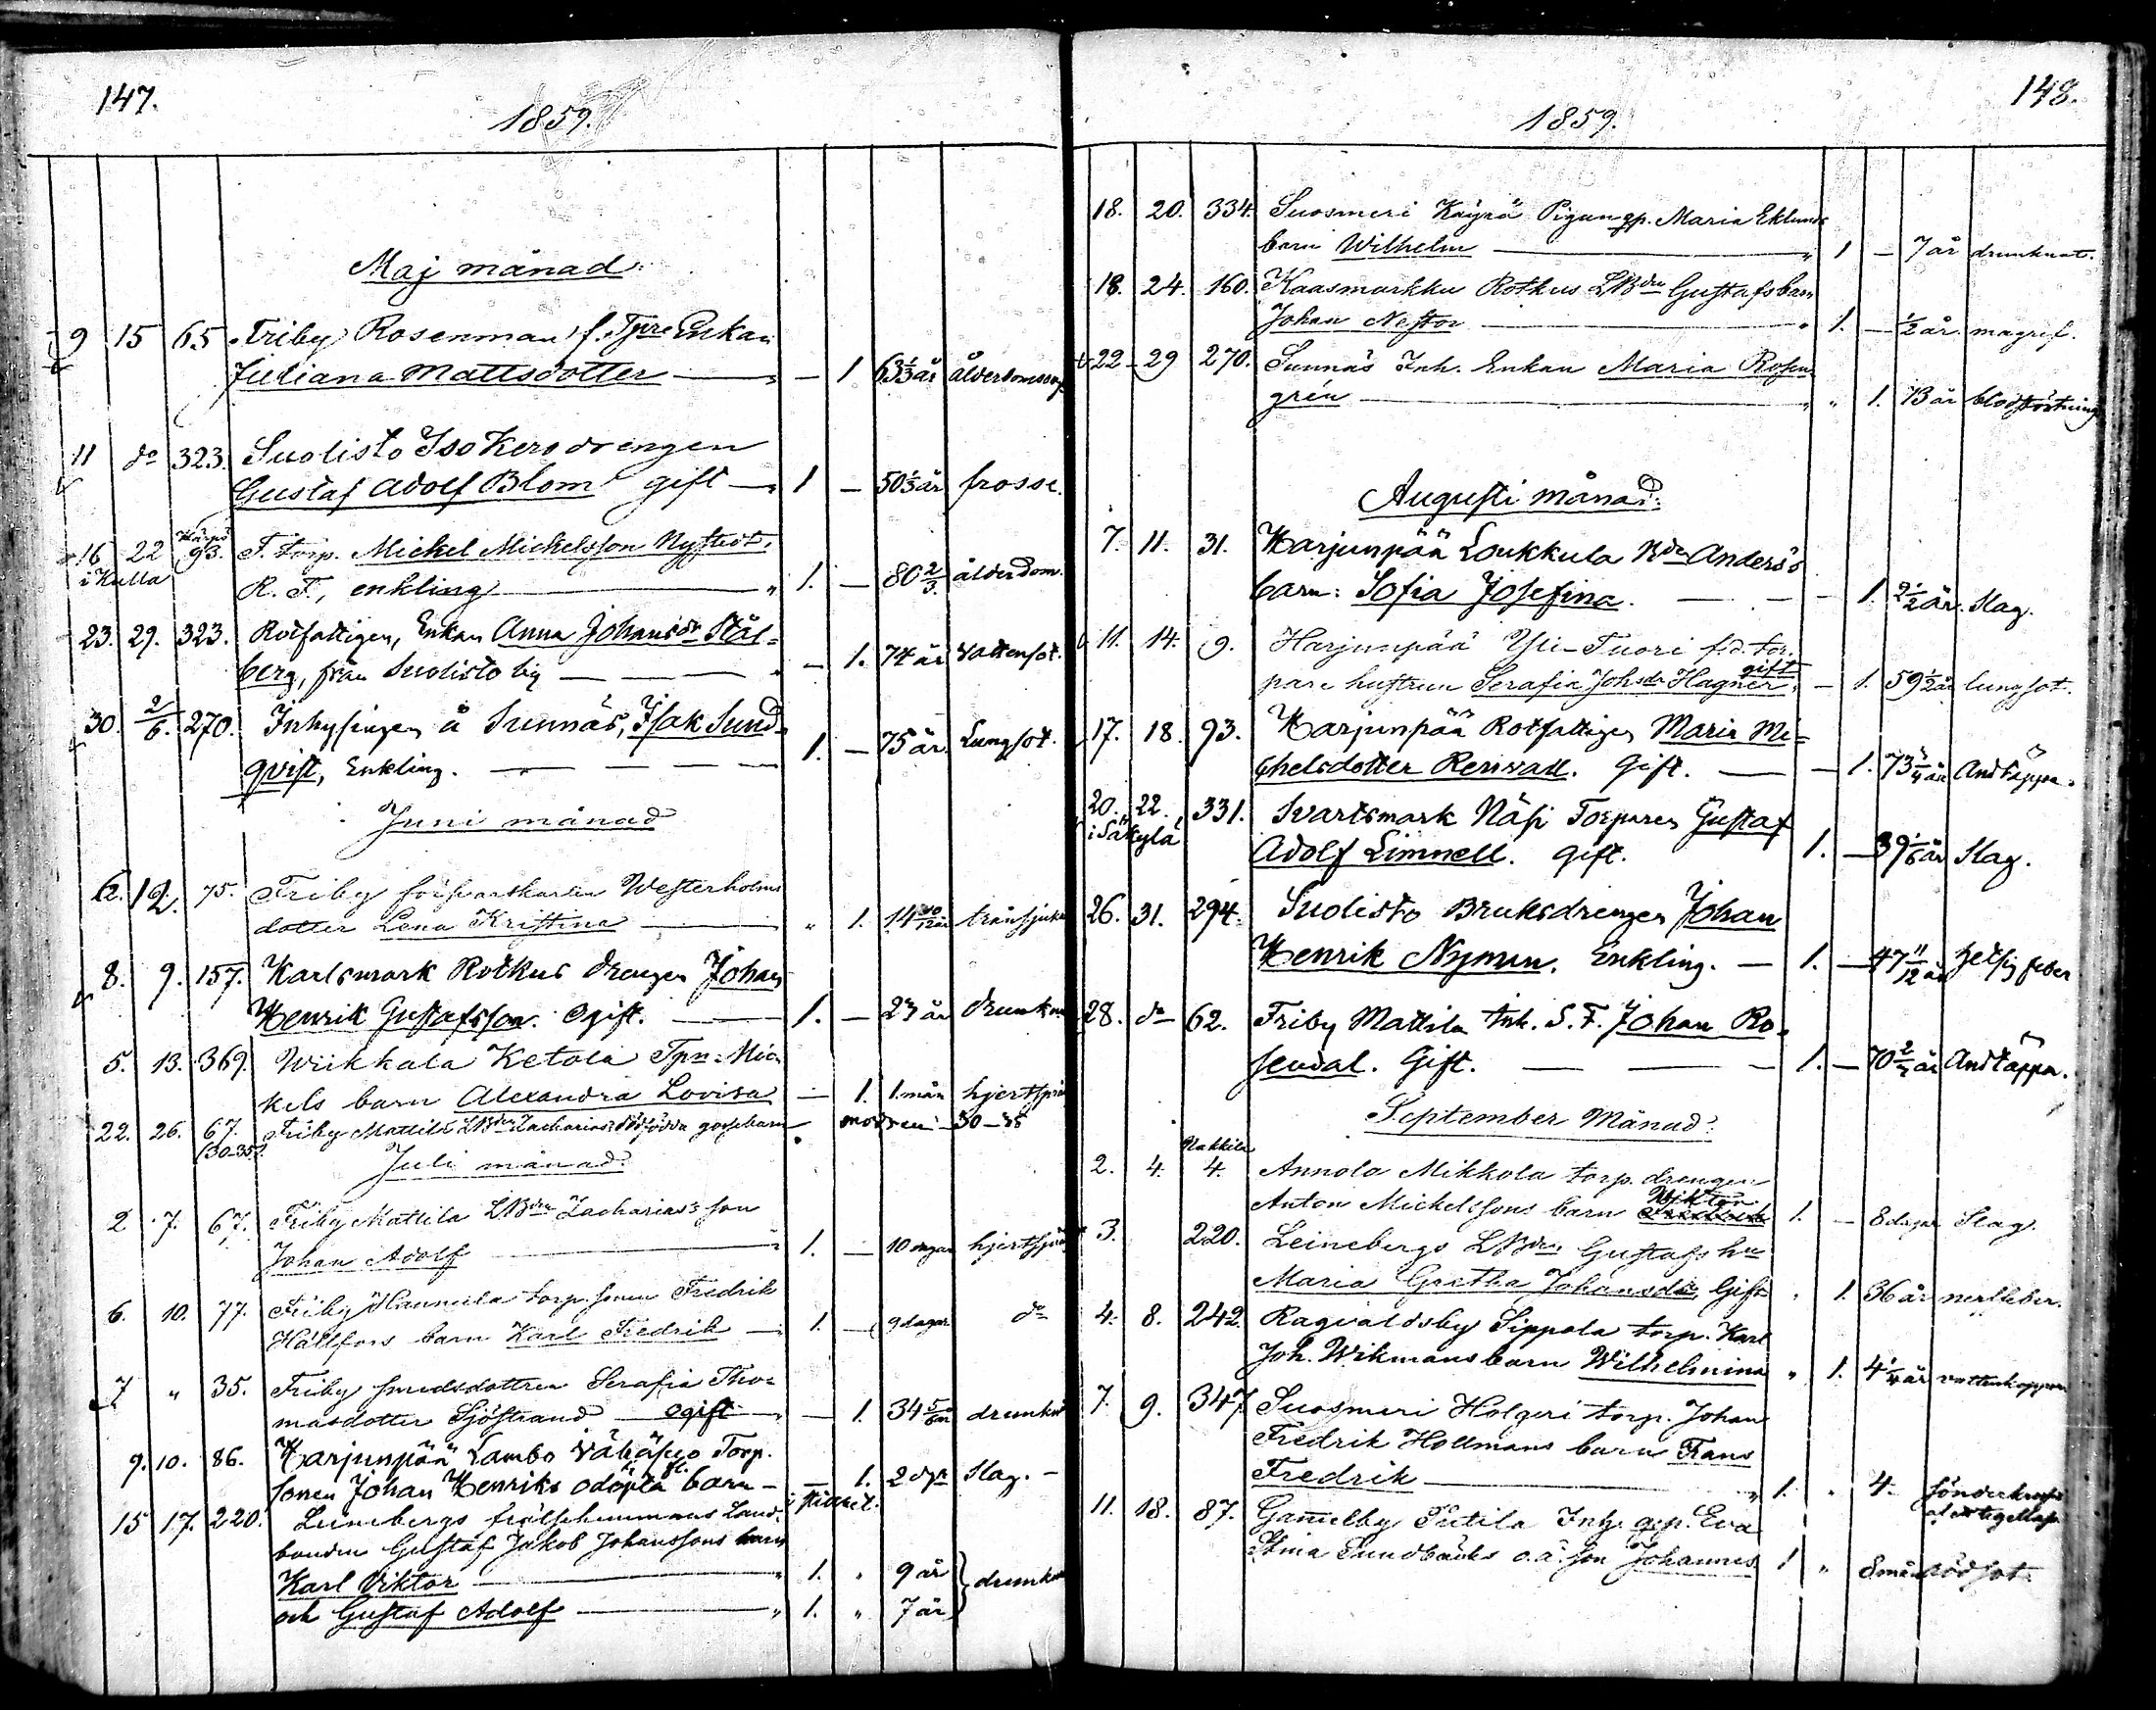 147.
1859.
Maj månad
9 15 65 Friby Rosenman f. Tpre Enkan
Juliana Mattsdotter — 1 63 1/3 år ålderdomssvag
11 do 323. Suolisto Iso Kers drengen
Gustaf Adolf Blom gift — 1 — 50 1/3 år frossa.
16 22 93. F. torp. Mickel Mickelsson Nystedt,
i Kulla R. F., enkling 1. — 80 2/3. ålderdom.
23. 29. 323. Rotfattigen, Enkan Anna Johansdr Stål=
berg, från Suolisto by — 1. 74 år Vattensot.
30. 2/6. 270. Inhysingen å Sunnäs, Isak Sund=
qvist, Enkling. 1. — 75 år Lungsot.
Juni månad
6. 12. 75. Friby Westerholms
dotter Lena Kristina " 1. 14 10/12 år tränsjuka
8. 9. 157. Karlsmark Rotkus drengen Johan
Henrik Gustafsson. Ogift. — 1. — 23 år drunkn
5. 13. 369. Wiikkala Ketola Tpn Mic=
kels barn Alexandra Lovisa — 1. 1. mån hjertspr
22. 26. 67. Friby Mattila LBdn Zacharias dödfödda gossebarn
(30-35) modren 30-35
Juli månad
2 7. 67. Friby Mattila LBdn Zacharias's son
Johan Adolf 1. — 10 dagar hjertspr
6. 10. 77. Friby Hannula torp. sonen Fredrik
Hällfors barn Karl Fredrik — 1. — 9 dagar do
7 " 35. Friby smedsdottren Serafia Tho=
masdotter Sjöstrand ogift — 1. 34 5/6 år drunkn
9. 10. 86. Harjunpää Lambo Torp.
sonen Johan Henriks odöpta fl. barn — — 1. 2 dgr Slag. —
15 17. 220. Leinebergs frälsehemmans Land=
bonden Gustaf Jakob Johanssons barn
Karl Viktor " 1. " 9 år
och Gustaf Adolf " 1. " 7 år } drunkn
148.
1859.
18. 20. 334. Suosmeri Käyrä Pigan qp. Maria Eklunds
barn Wilhelm " 1 — 7 år drunknat.
18. 24. 160. Kaasmarkku Rotkus LBdn Gustafs barn
Johan Nestor " 1. — 1/2 år magref.
22 29 270. Sunnäs Inh. Enkan Maria Rosen
grén " " 1. 73 år blodstörtning
Augusti månad:
7. 11. 31. Harjunpää Loukkula Bdn Anders's
barn: Sofia Josefina. — — 1. 2 1/2 år. Slag.
11. 14. 9. Harjunpää Yli-Tuori f.d. tor.
pare hustrun Serafia Johsdr Hagner, gift — 1. 59 1/2 år lungsot.
17. 18. 93. Harjunpää Rotfattigen Maria Mi=
chelsdotter Renvall. Gift. — 1. 73 3/4 år Andtäppa.
20. 22. 331. Svartsmark Näsi Torparen Gustaf
i Säkylä Adolf Limnell. gift. 1. — 39 1/6 år Slag.
26. 31. 294. Suolisto Bruksdrengen Johan
Henrik Nyman. Enkling. — 1. — 47 11/12 år hetsig feber
28. do 62. Friby Mattila Inh. S. F. Johan Ro=
sendal. Gift. — 1. — 70 år Andtäppa.
September Månad:
Nakkila
2. 4. 4. Annola Mikkola torp. drengen
Anton Mickelssons barn Viktor 1. — 8 dagar Slag.
3. 220. Leinebergs LBdn Gustafs hu
Maria Gretha Johansdr, Gift " 1. 36 år nerffeber.
4. 8. 242. Ragvaldsby Sippola torp. Karl
Joh. Wikmans barn Wilhelmina " 1. 4 1/4 år vattenkoppor
7. 9. 347 Suosmeri Holgeri torp. Johan
Fredrik Hollmans barn Frans
Fredrik " 1. " 4. sönderkrossad
11. 18. 87. Gammelby Sutila Inh. qp. Eva
Stina Sundbäcks o.ä. son Johannes 1 " 8 mån rödsot.